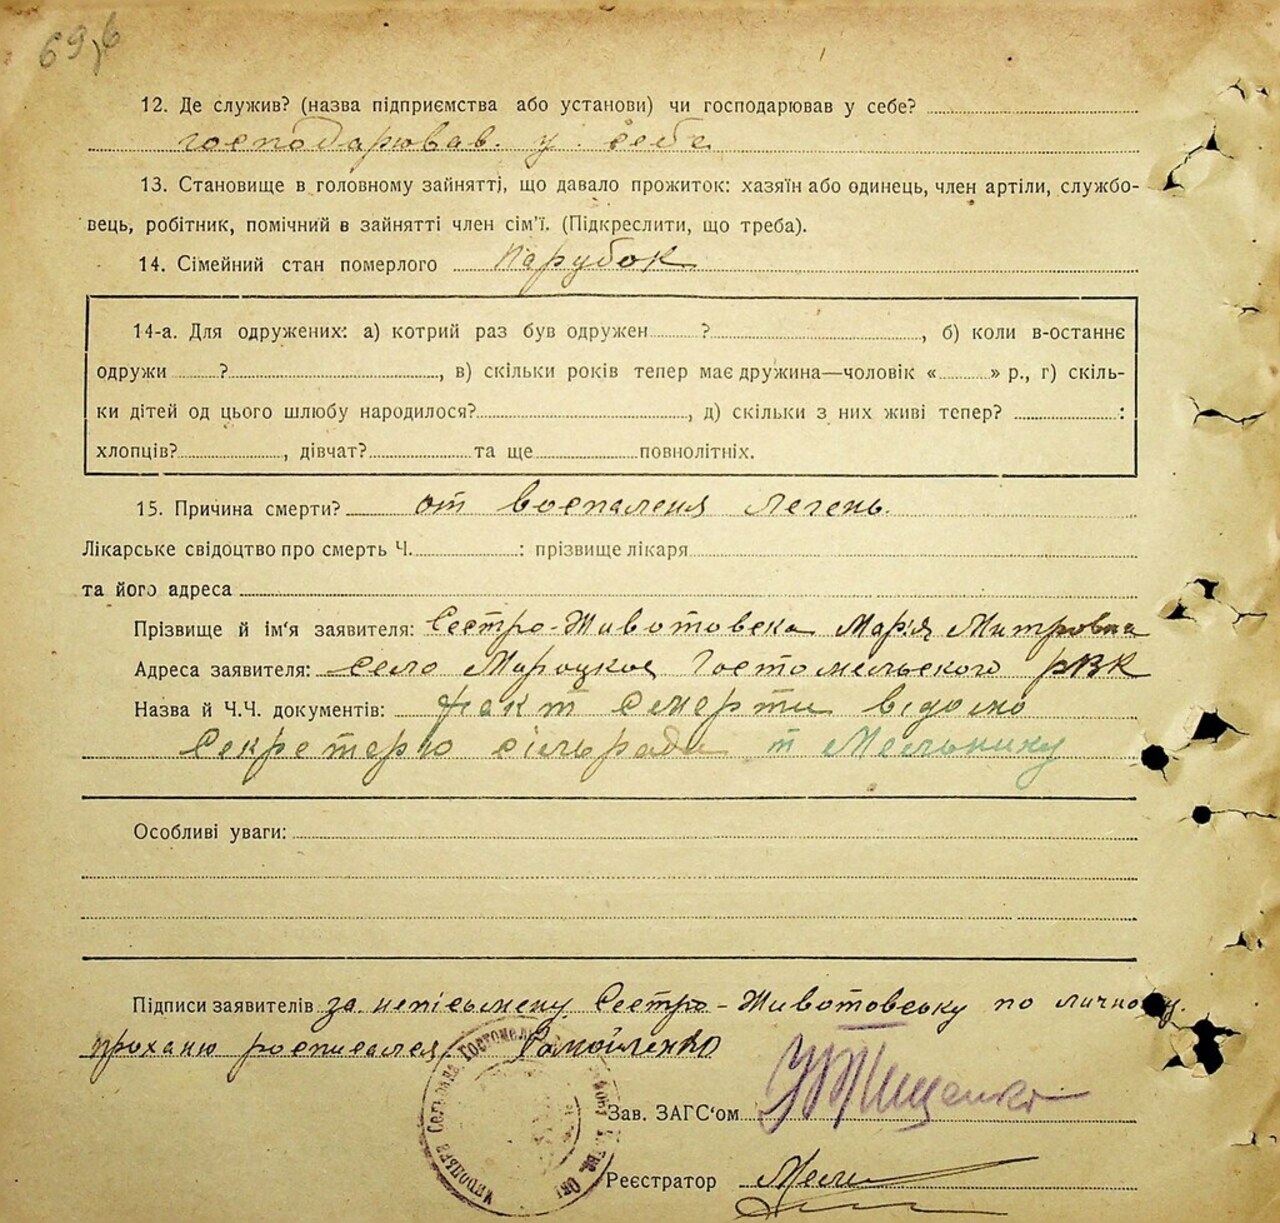 69,б
12. Де служив? (назва підприємства або установи) чи господарював у себе?
господарював. у. себе
13. Становище в головному зайнятті, що давало прожиток: хазяїн або одинець, член артіли, службо-
вець, робітник, помічний в зайнятті член сім'ї. (Підкреслити, що треба).
14. Сімейний стан померлого Парубок
14-а. Для одружених: а) котрий раз був одружен ? , б) коли в-останнє
одружи ? , в) скільки років тепер має дружина—чоловік « » р., г) скіль-
ки дітей од цього шлюбу народилося? , д) скільки з них живі тепер? :
хлопців? , дівчат? та ще повнолітніх.
15. Причина смерти? от воспаленя легень.
Лікарське свідоцтво про смерть Ч. : прізвище лікаря
та його адреса
Прізвище й ім'я заявителя: Сестро-Животовска Мария Митровна
Адреса заявителя: село Мироцкое Гостомельского рВК
Назва й Ч.Ч. документів: факт смерти відомо
Секретерю сільради т Мельнику
Особливі уваги:
Підписи заявителів за непісьмену Сестро-Животовську по личному
проханю росписался Самойленко
Зав. ЗАГС'ом Тищенко
Реєстратор Мель